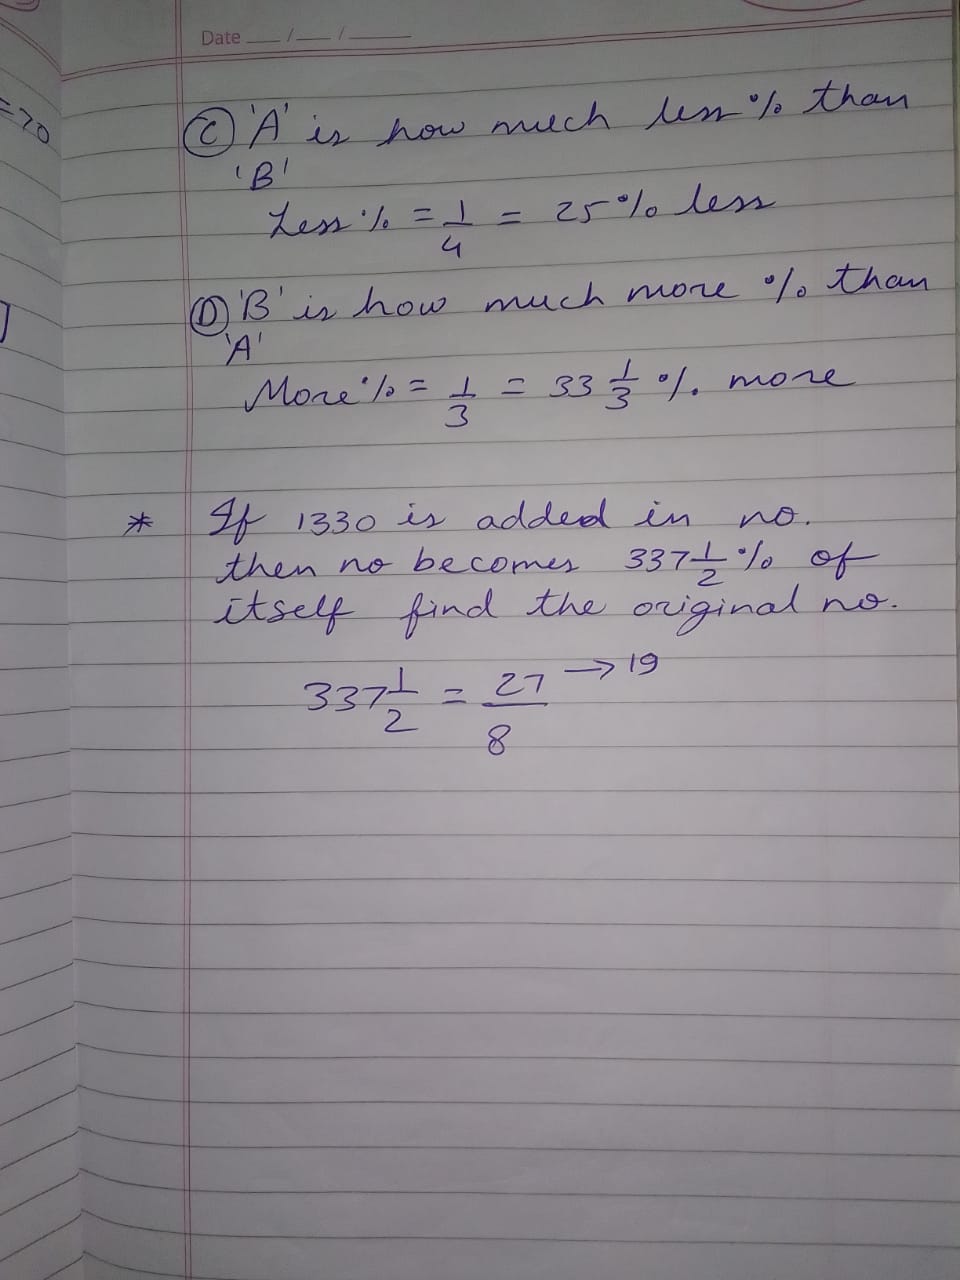 Date __/__/____
=20
Ⓒ 'A' is how much less % than
'B'
Less % = 1/4 = 25% less
Ⓓ 'B' is how much more % than
'A'
More % = 1/3 = 33 1/3 %. more
* If 1330 is added in no.
then no becomes 337 1/2 % of
itself find the original no.
337 1/2 = 27/8 → 19